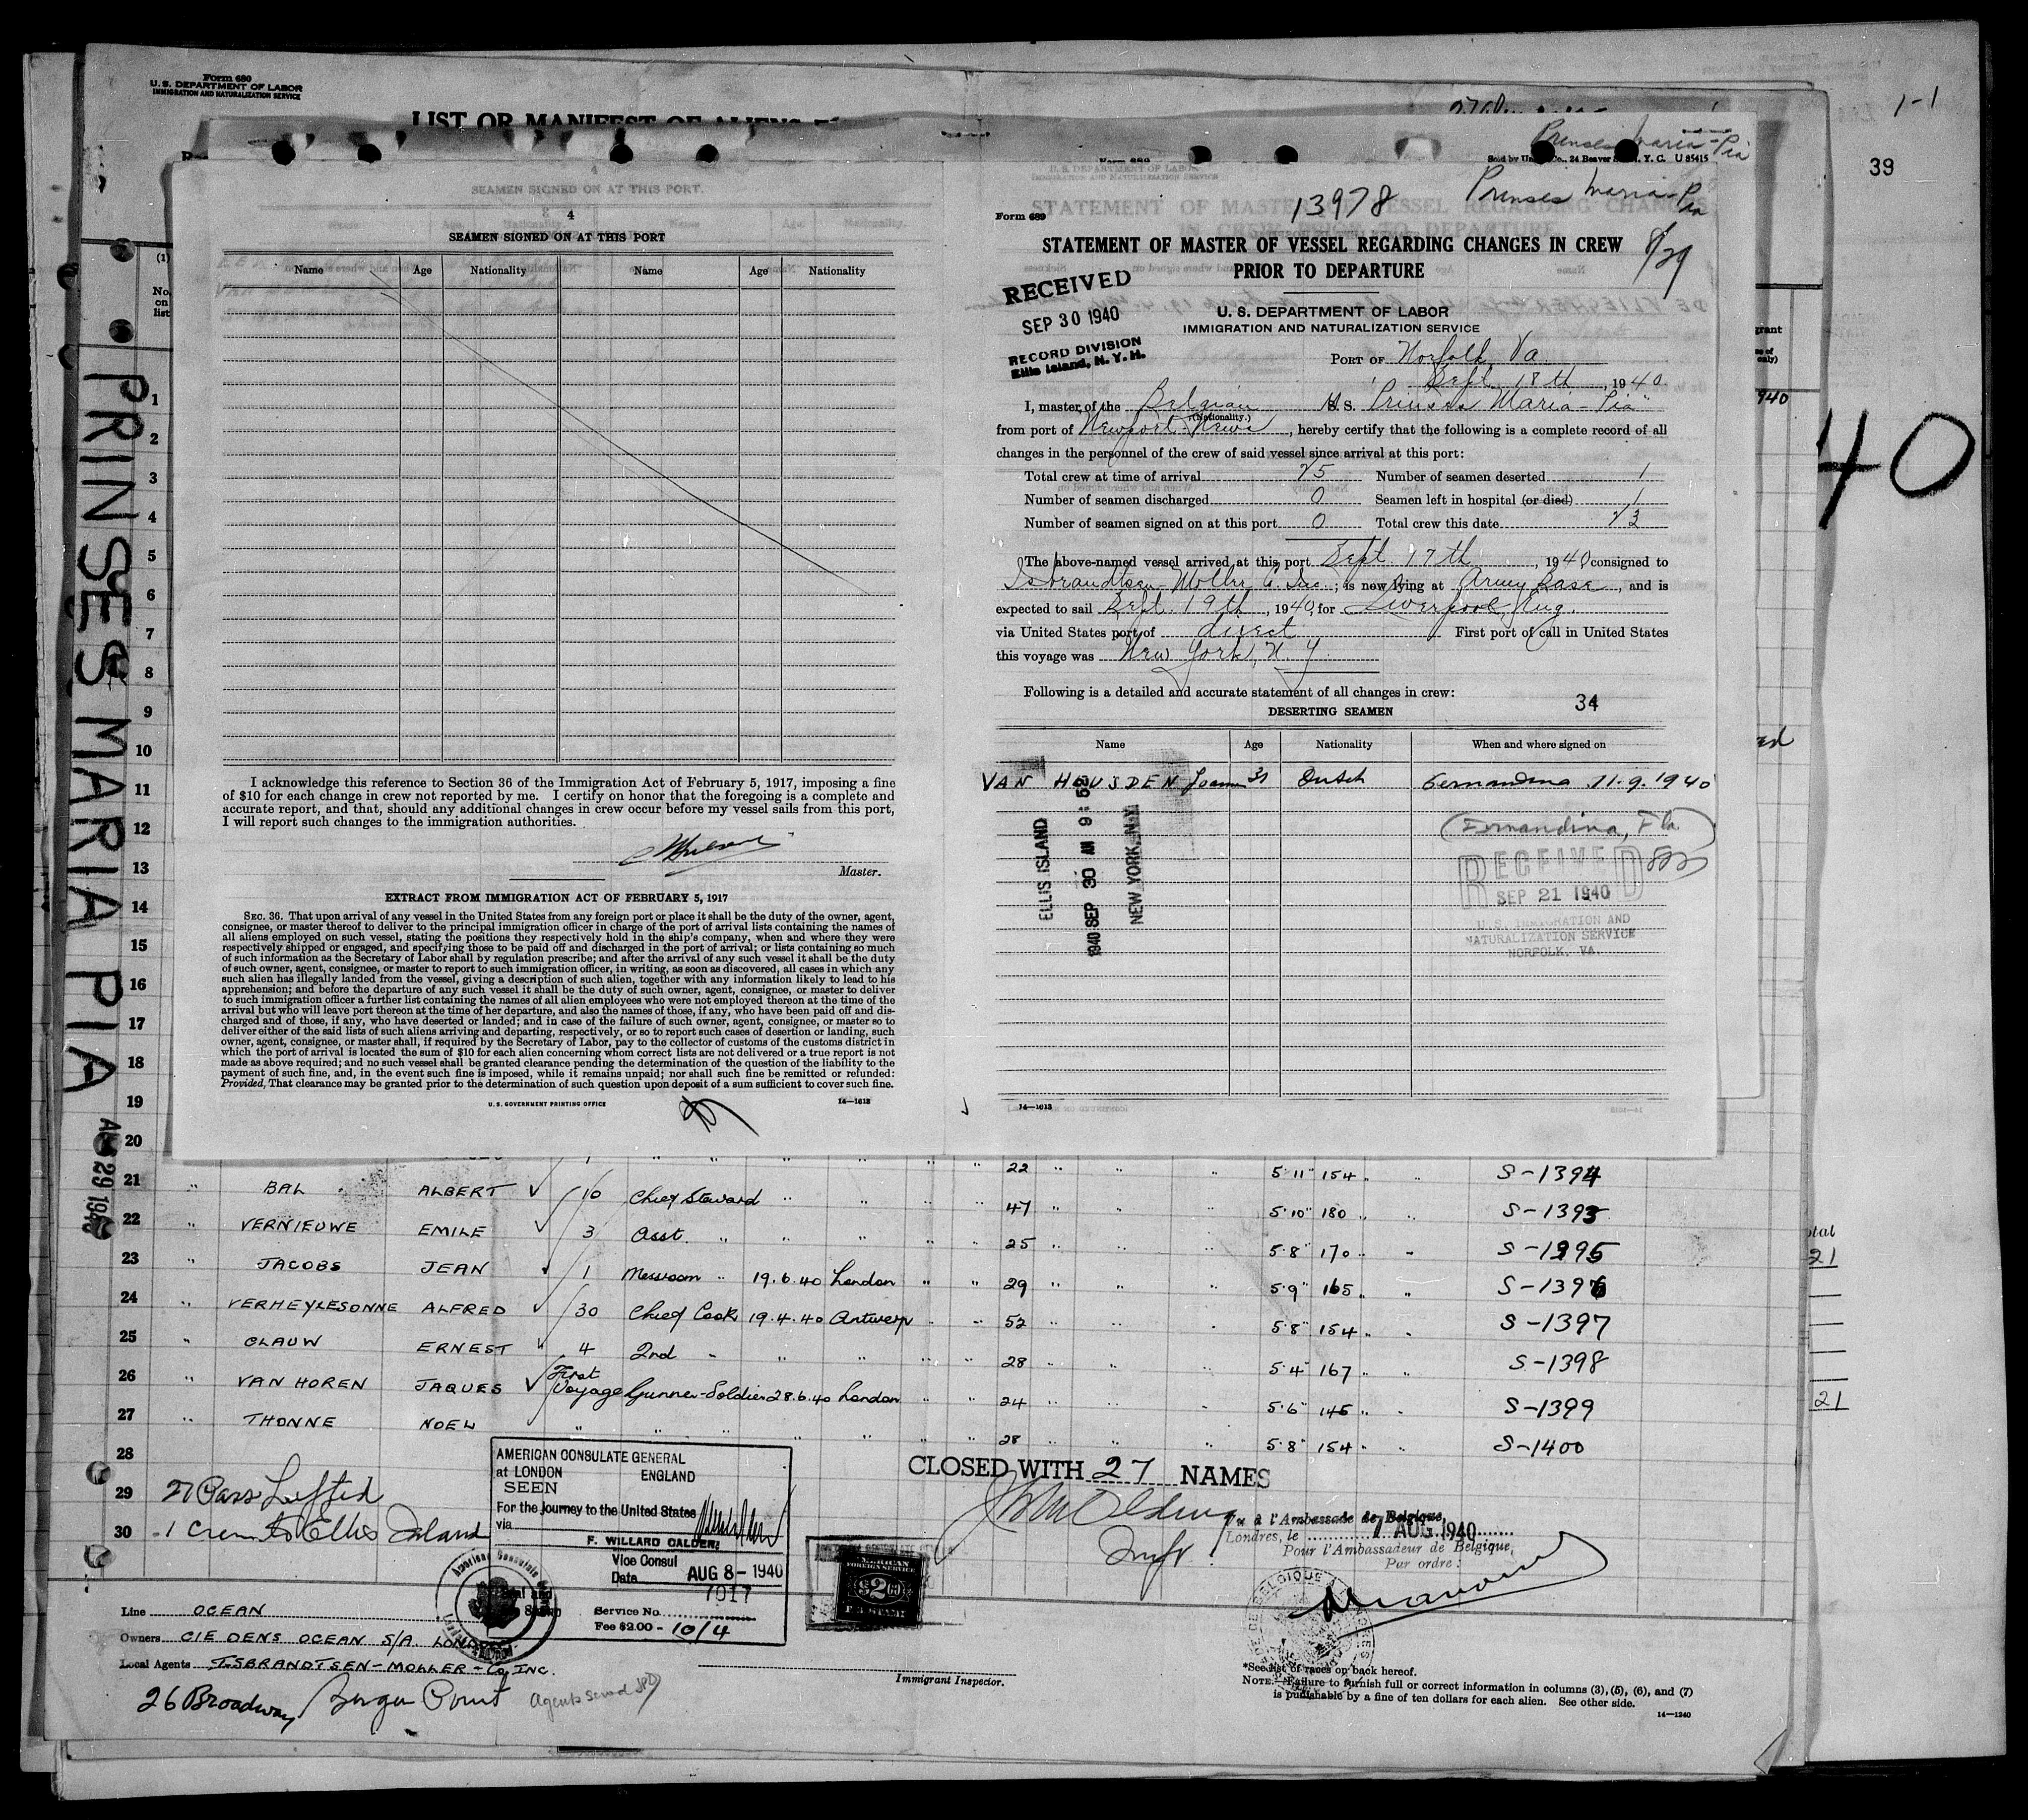 Form 680
U. S. DEPARTMENT OF LABOR
IMMIGRATION AND NATURALIZATION SERVICE
LIST OR MANIFEST OF ALIENS
1-1
39
40
PRINSES MARIA PIA
AUG 29 1940
4
SEAMEN SIGNED ON AT THIS PORT
Name Age Nationality Name Age Nationality
I acknowledge this reference to Section 36 of the Immigration Act of February 5, 1917, imposing a fine
of $10 for each change in crew not reported by me. I certify on honor that the foregoing is a complete and
accurate report, and that, should any additional changes in crew occur before my vessel sails from this port,
I will report such changes to the immigration authorities.
Master.
EXTRACT FROM IMMIGRATION ACT OF FEBRUARY 5, 1917
SEC. 36. That upon arrival of any vessel in the United States from any foreign port or place it shall be the duty of the owner, agent,
consignee, or master thereof to deliver to the principal immigration officer in charge of the port of arrival lists containing the names of
all aliens employed on such vessel, stating the positions they respectively hold in the ship's company, when and where they were
respectively shipped or engaged, and specifying those to be paid off and discharged in the port of arrival; or lists containing so much
of such information as the Secretary of Labor shall by regulation prescribe; and after the arrival of any such vessel it shall be the duty
of such owner, agent, consignee, or master to report to such immigration officer, in writing, as soon as discovered, all cases in which any
such alien has illegally landed from the vessel, giving a description of such alien, together with any information likely to lead to his
apprehension; and before the departure of any such vessel it shall be the duty of such owner, agent, consignee, or master to deliver
to such immigration officer a further list containing the names of all alien employees who were not employed thereon at the time of the
arrival but who will leave port thereon at the time of her departure, and also the names of those, if any, who have been paid off and dis-
charged and of those, if any, who have deserted or landed; and in case of the failure of such owner, agent, consignee, or master so to
deliver either of the said lists of such aliens arriving and departing, respectively, or so to report such cases of desertion or landing, such
owner, agent, consignee, or master shall, if required by the Secretary of Labor, pay to the collector of customs of the customs district in
which the port of arrival is located the sum of $10 for each alien concerning whom correct lists are not delivered or a true report is not
made as above required; and no such vessel shall be granted clearance pending the determination of the question of the liability to the
payment of such fine, and, in the event such fine is imposed, while it remains unpaid; nor shall such fine be remitted or refunded:
Provided, That clearance may be granted prior to the determination of such question upon deposit of a sum sufficient to cover such fine.
U. S. GOVERNMENT PRINTING OFFICE 14—1613
Prinses Maria-Pia
Co., 24 Beaver N. Y. C. U 85415
13978 Prinses Maria-Pia
8/29
Form 689
STATEMENT OF MASTER OF VESSEL REGARDING CHANGES IN CREW
PRIOR TO DEPARTURE
RECEIVED
SEP 30 1940
RECORD DIVISION
Ellis Island, N. Y. H.
U. S. DEPARTMENT OF LABOR
IMMIGRATION AND NATURALIZATION SERVICE
PORT OF Norfolk Va.
Sept. 18th, 1940
I, master of the Belgian S. S. Prinses Maria-Pia"
(Nationality.)
from port of Newport News, hereby certify that the following is a complete record of all
changes in the personnel of the crew of said vessel since arrival at this port:
Total crew at time of arrival 25 Number of seamen deserted 1
Number of seamen discharged 0 Seamen left in hospital (or died) 1
Number of seamen signed on at this port 0 Total crew this date 23
The above-named vessel arrived at this port Sept. 17th, 1940, consigned to
Isbrandtsen-Moller Co Inc.; is now lying at Army Base, and is
expected to sail Sept. 19th, 1940, for Liverpool, Eng.
via United States port of direct First port of call in United States
this voyage was New York, N. Y.
Following is a detailed and accurate statement of all changes in crew:
34
DESERTING SEAMEN
Name Age Nationality When and where signed on
VAN HOUSDEN 31 Dutch Fernandina 11.9.1940
(Fernandina, Fla.)
ELLIS ISLAND
1940 SEP 30 AM 9:52
NEW YORK, N.Y.
RECEIVED
SEP 21 1940
U. S. IMMIGRATION AND
NATURALIZATION SERVICE
NORFOLK, VA.
14—1613
(1)
No.
on
list
1
2
3
4
5
6
7
8
9
10
11
12
13
14
15
16
17
18
19
20
22 5'11" 154 S-1394
21 " BAL ALBERT 10 Chief Steward " " 47 5'10" 180 S-1393
22 " VERNIEUWE EMILE 3 Asst. " " " 25 5'8" 170 S-1295
23 " JACOBS JEAN 1 Messroom " 19.6.40 London " " 29 5'9" 165 S-1396
24 " VERHEYLESONNE ALFRED 30 Chief Cook 19.4.40 Antwerp " " 52 5'8" 154 S-1397
25 " CLAUW ERNEST 4 2nd " " " 28 5'4" 167 S-1398
26 " VAN HOREN JAQUES First Voyage Gunner-Soldier 28.6.40 London " " 24 5'6" 145 S-1399
27 " THONNE NOEL " " " " 28 5'8" 154 S-1400
28
29
30
total
21
21
27 Pass Lifted
1 Crew to Ellis Island
CLOSED WITH 27 NAMES
AMERICAN CONSULATE GENERAL
at LONDON ENGLAND
SEEN
For the journey to the United States
via
F. WILLARD CALDER
Vice Consul
Date AUG 8 - 1940
Service No. 7017
Fee $2.00 - 10/4
Vu à l'Ambassade de Belgique,
Londres, le 7 AUG 1940
Pour l'Ambassadeur de Belgique,
Par ordre:
Line OCEAN
Owners CIE DENS OCEAN S/A. LONDON
Local Agents ISBRANDTSEN-MOLLER-Co INC.
26 Broadway
Immigrant Inspector.
*See list of races on back hereof.
NOTE.—Failure to furnish full or correct information in columns (3), (5), (6), and (7)
is punishable by a fine of ten dollars for each alien. See other side.
14—1240